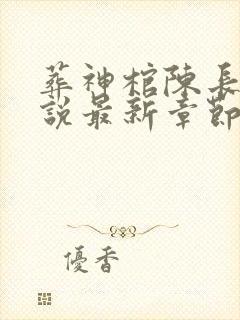 葬神棺陳長
說最新章節
優香